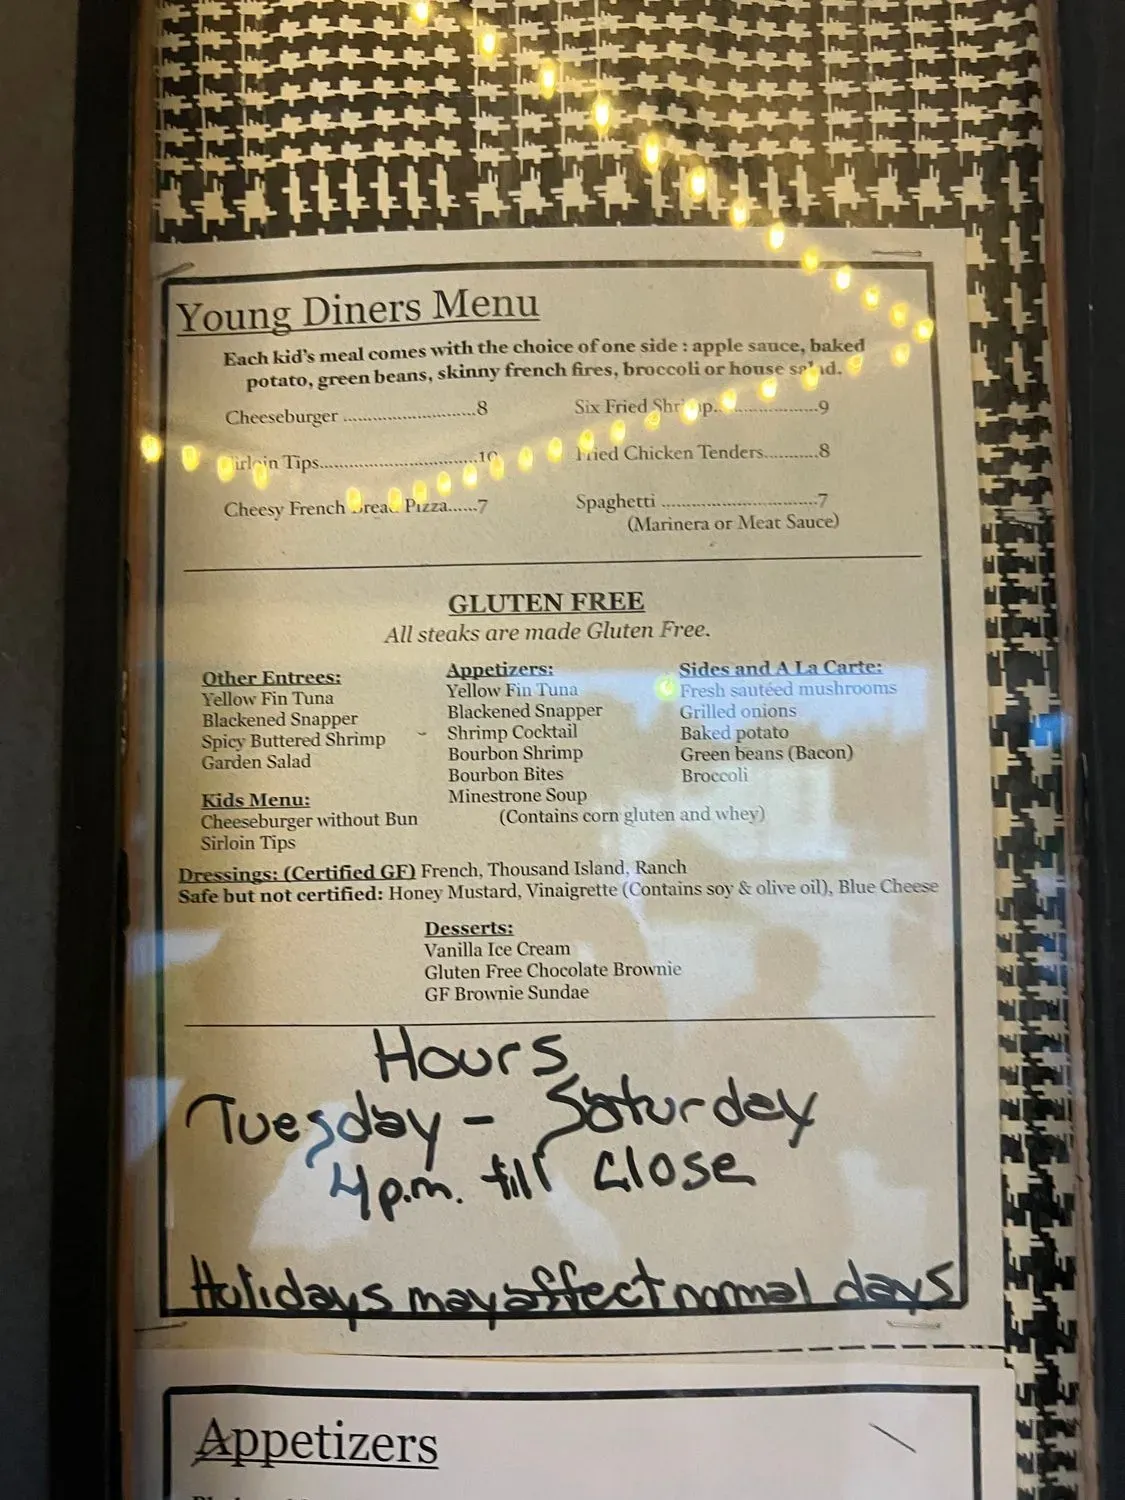 Young Diners Menu
Each kid's meal comes with the choice of one side : apple sauce, baked
potato, green beans, skinny french fires, broccoli or house salad.
Cheeseburger ............................8
Six Fried Shrimp.......................9
Sirloin Tips.................................10
Fried Chicken Tenders...........8
Cheesy French Bread Pizza......7
Spaghetti ................................7
(Marinera or Meat Sauce)
GLUTEN FREE
All steaks are made Gluten Free.
Other Entrees:
Yellow Fin Tuna
Blackened Snapper
Spicy Buttered Shrimp
Garden Salad
Kids Menu:
Cheeseburger without Bun
Sirloin Tips
Appetizers:
Yellow Fin Tuna
Blackened Snapper
Shrimp Cocktail
Bourbon Shrimp
Bourbon Bites
Minestrone Soup
(Contains corn gluten and whey)
Sides and A La Carte:
Fresh sautéed mushrooms
Grilled onions
Baked potato
Green beans (Bacon)
Broccoli
Dressings: (Certified GF) French, Thousand Island, Ranch
Safe but not certified: Honey Mustard, Vinaigrette (Contains soy & olive oil), Blue Cheese
Desserts:
Vanilla Ice Cream
Gluten Free Chocolate Brownie
GF Brownie Sundae
Hours
Tuesday - Saturday
4 p.m. till close
Holidays may affect normal days
Appetizers